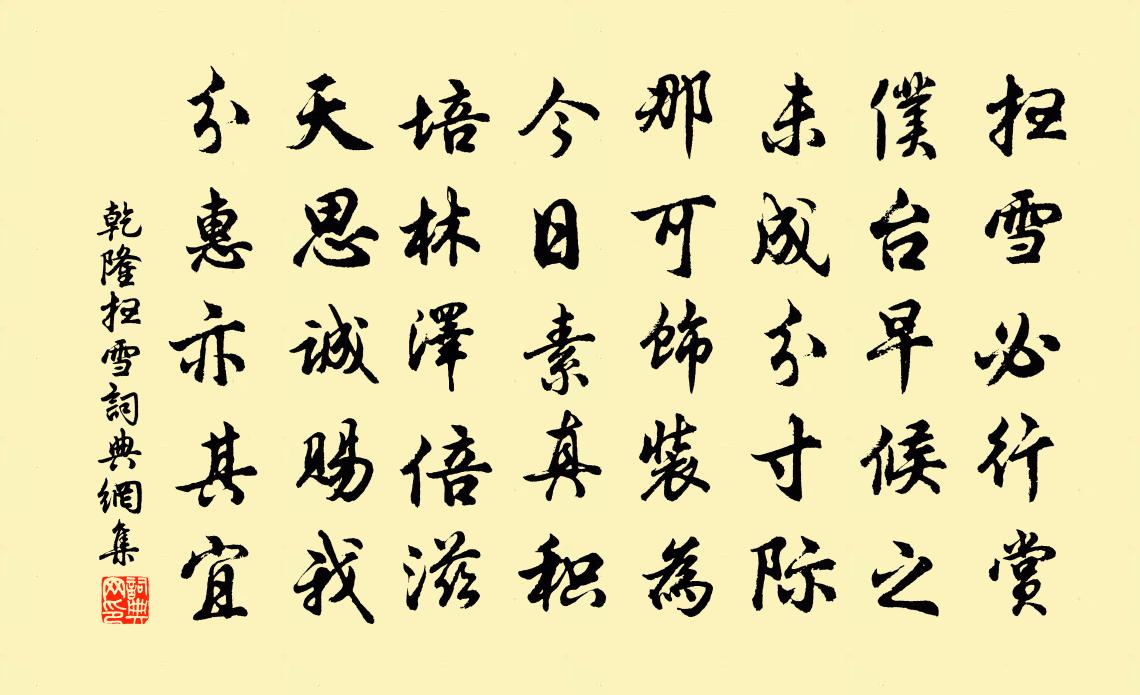 扫雪必行赏
僕台早候之
未成分寸际
那可饰装為
今日素真积
培林澤倍滋
天恩誠賜我
分惠亦其宜
乾隆扫雪詞典網集
詞典网印